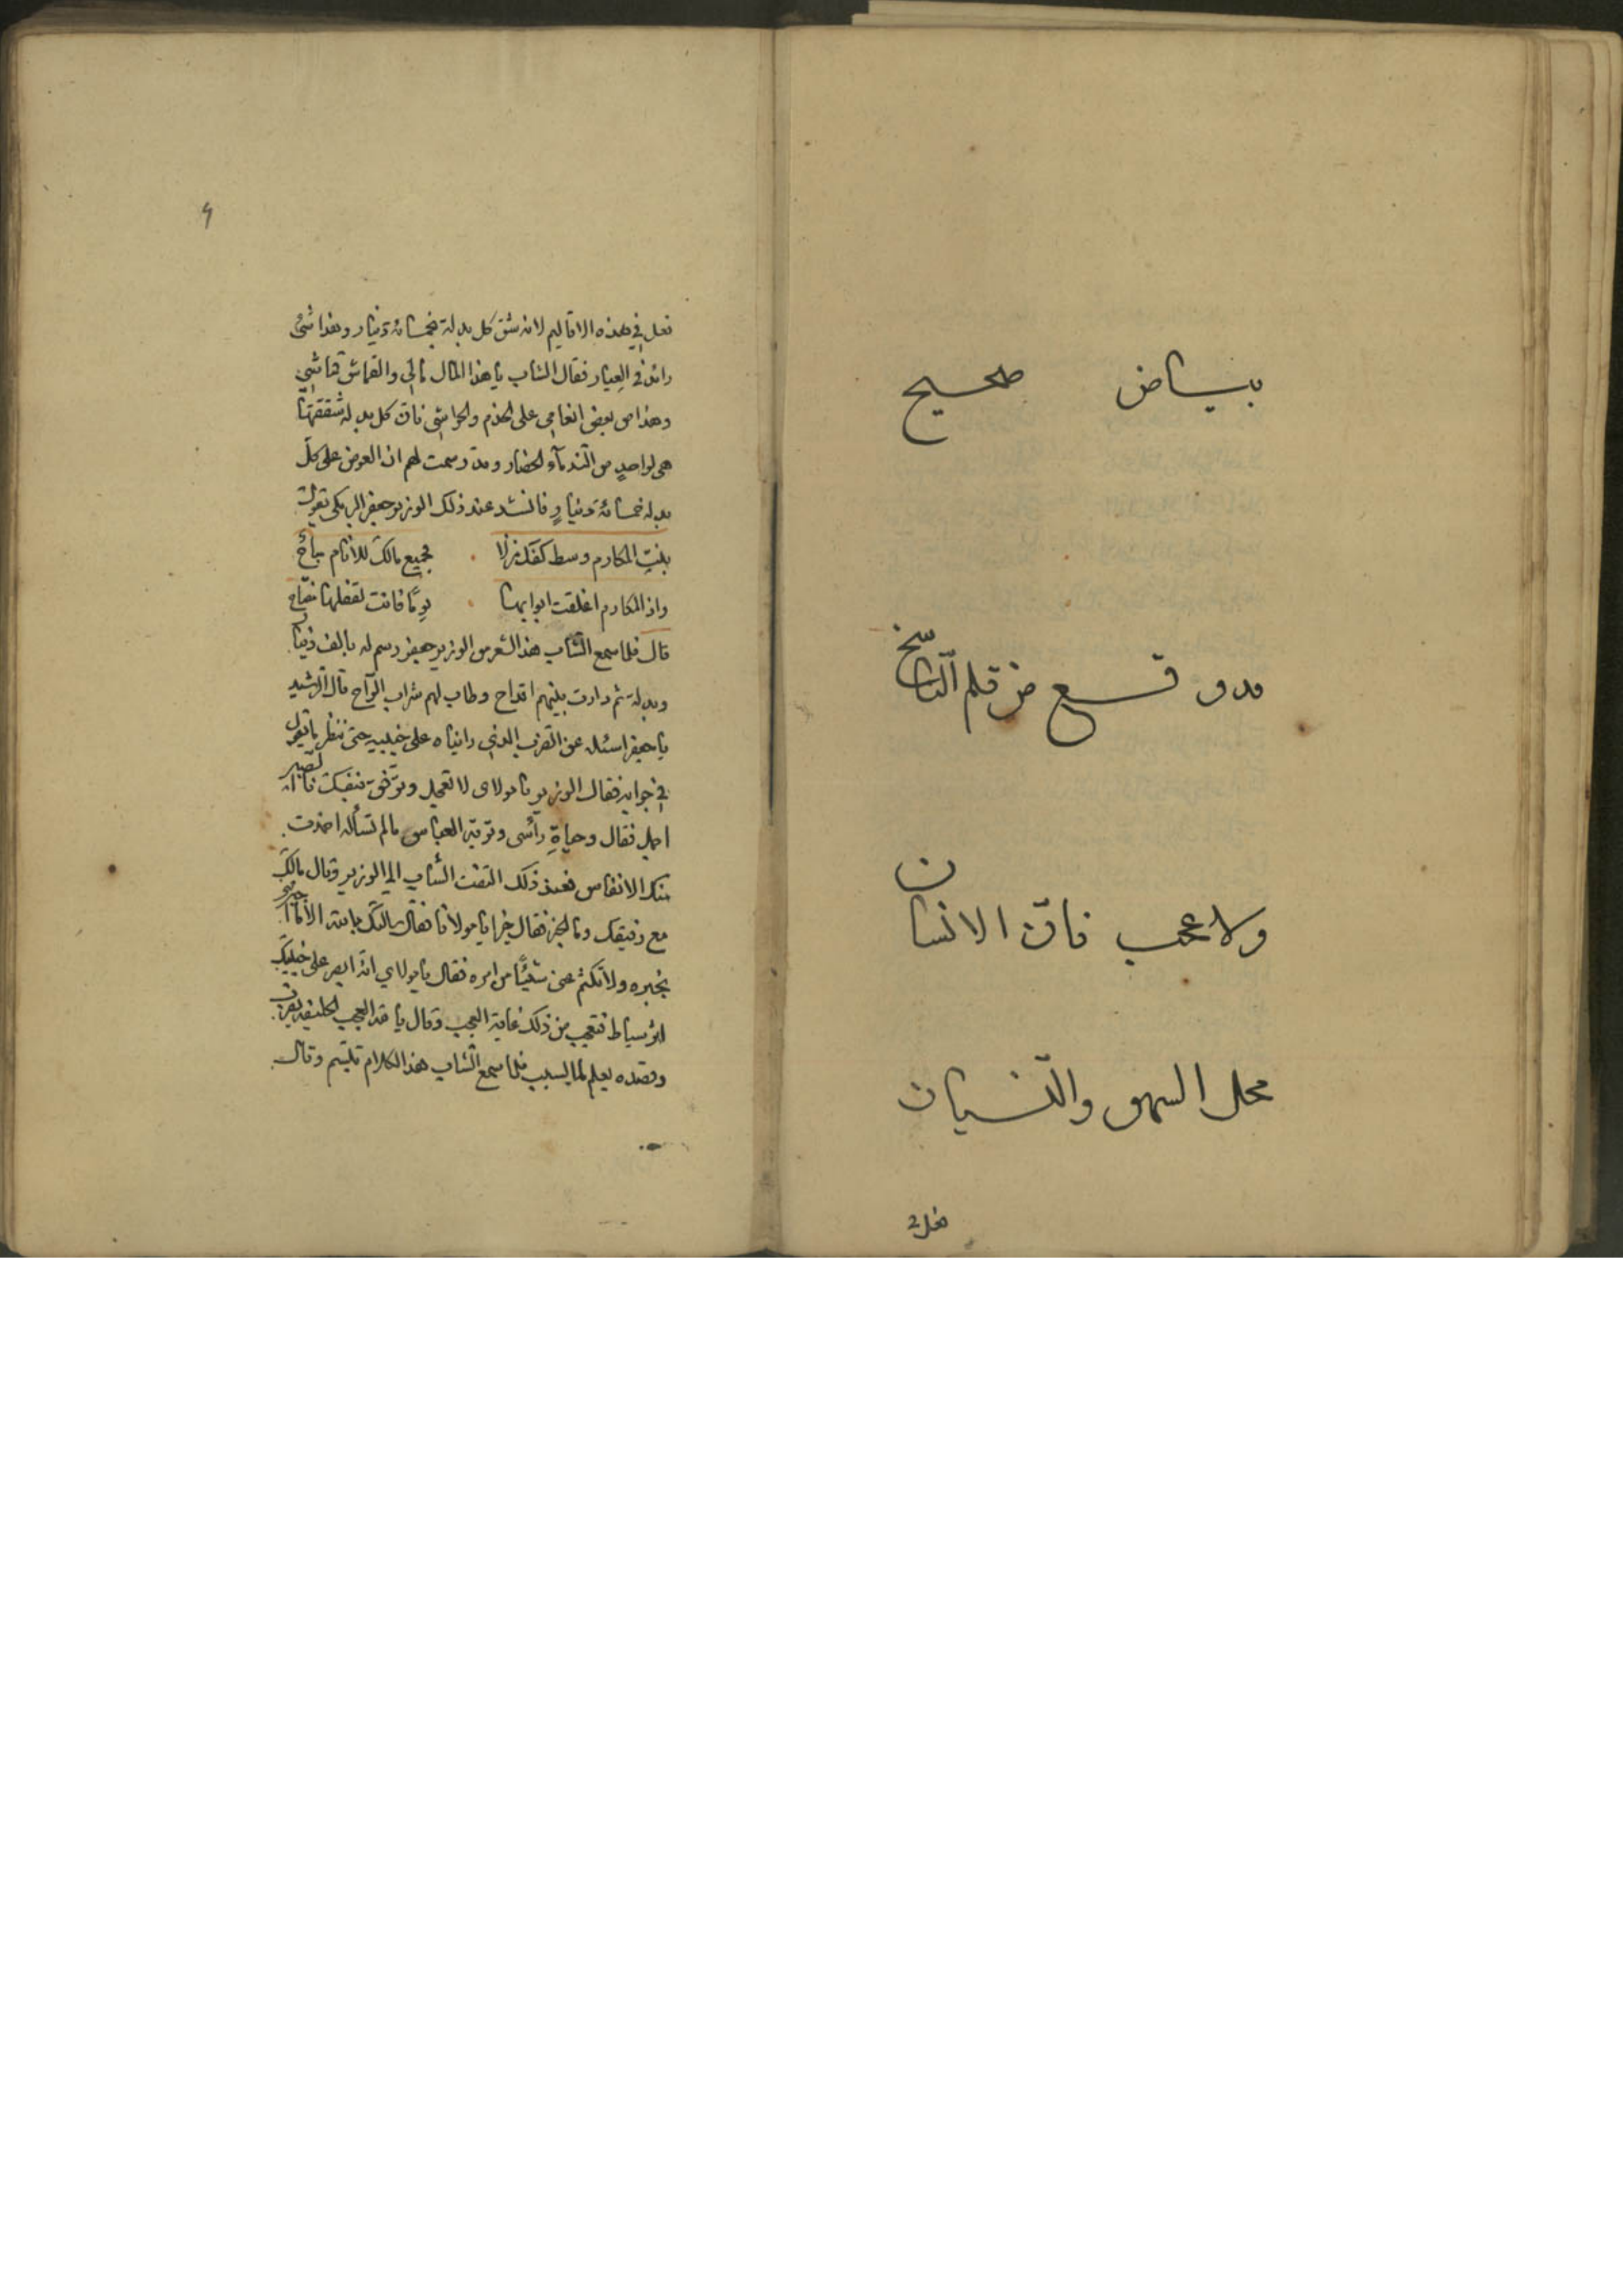 بياض صحيح
قدوقع من قلم النّاسخ
ولا عجب فانّ الانسان
محل السهو والنّسيان
فعل في
٩
فعل في هذه الاقاليم لانه شق كل بدلة بخمسمائة دينار وهذا شئ
زائد في العيار فقال الشاب يا هذا المال مالي والقماش قماشي
وهذا من بعض انعامي على الخدم والحواشي فانّ كل بدلة شققتها
هي لواحد من الندمآء الحضار وقد رسمت لهم ان العوض على كل
بدله خمسمائة دينارٍ فانشد عند ذلك الوزير جعفر البرمكي يقول
بنت المكارم وسط كفك منزلا فجميع مالك للانام مباح
واذا المكارم اغلقت ابوابها يومًا فانت لقفلها مفتاح
قال فلما سمع الشاب هذا الشعر من الوزير جعفر رسم له بالف دينار
وبدلة ثم دارت بينهم اقداح وطاب لهم شراب الرّاح قال الرشيد
يا جعفر اسئله عن الضرب الذي رايناه على جنبيه حتى ننظر ما يقول
في جوابه فقال الوزير يا مولاي لا تعجل وترفق بنفسك فانّ الصبر
اجمل فقال وحياةِ رأسي وتربة العباس ما لم تسأله اخمدت
منك الانفاس فعند ذلك التفت الشاب الى الوزير وقال مالك
مع رفيقك وما الخبر فقال خيرا يا مولانا فقال سالتك بالله الا ما اخبرتني
بخبره ولا تكتم عني شيئًا من امره فقال يا مولاي انّه ابصر على جنبيك
اثر سياط فتعجب من ذلك غاية العجب وقال يا لله العجب الخليفة يضرب
وقصده يعلم ما السبب فلما سمع الشاب هذا الكلام تبسم وقال